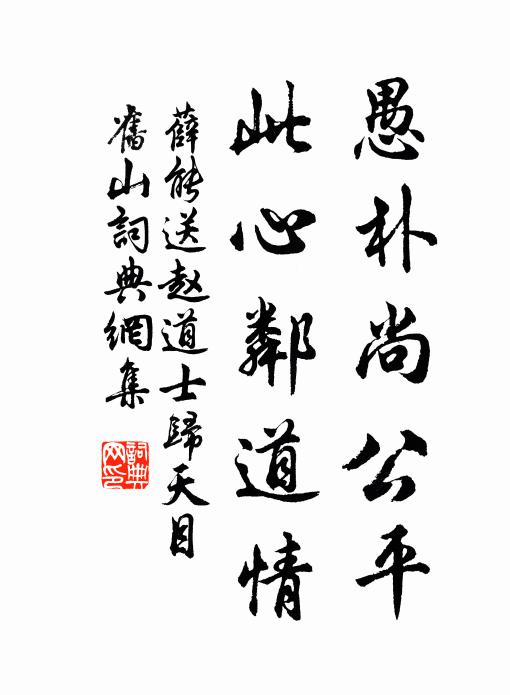 愚朴尚公平
此心鄰道情
薛能送赵道士歸天目
舊山詞典網集
詞典
网印